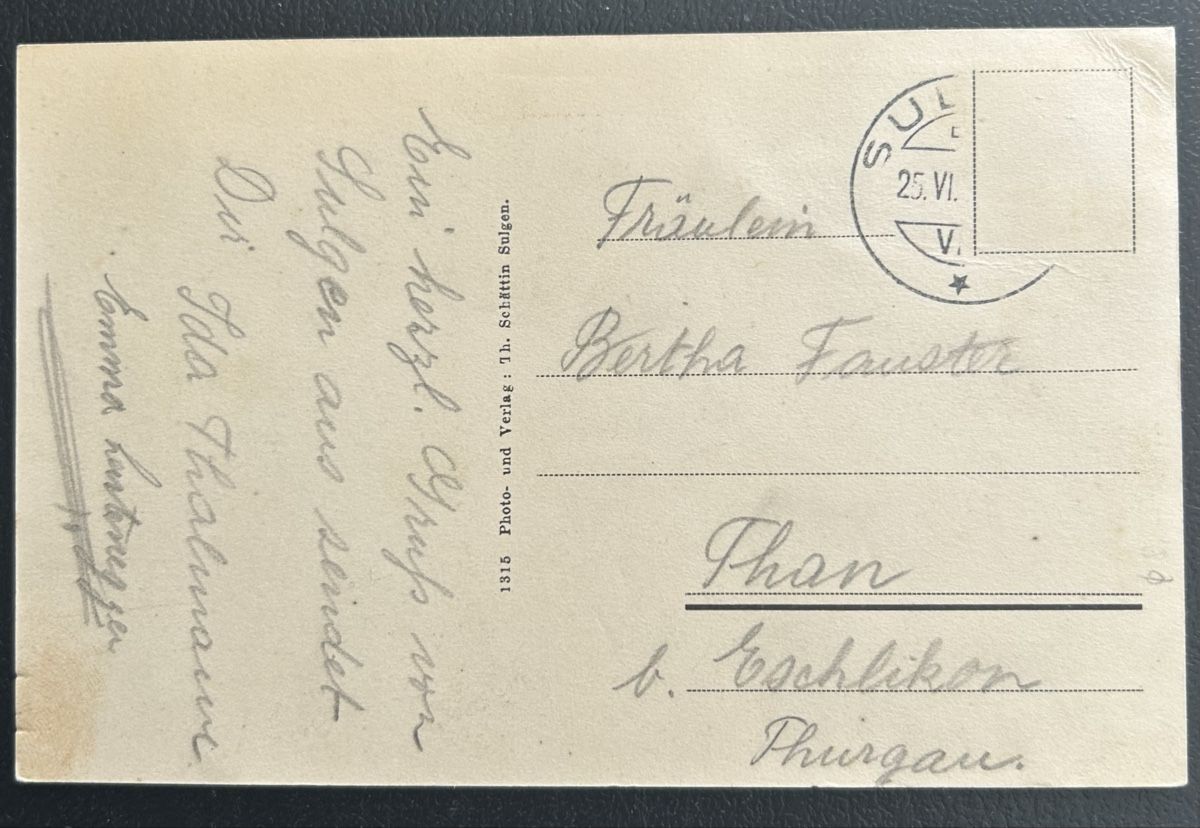 Ein herzl. Gruss von
Sulgen aus sendet
Dir Ida Thalmann.
Emma
1315 Photo- und Verlag: Th. Schättin Sulgen.
SUL
25. VI.
V.
Fräulein
Bertha Fauster
Than
b. Eschlikon
Thurgau.